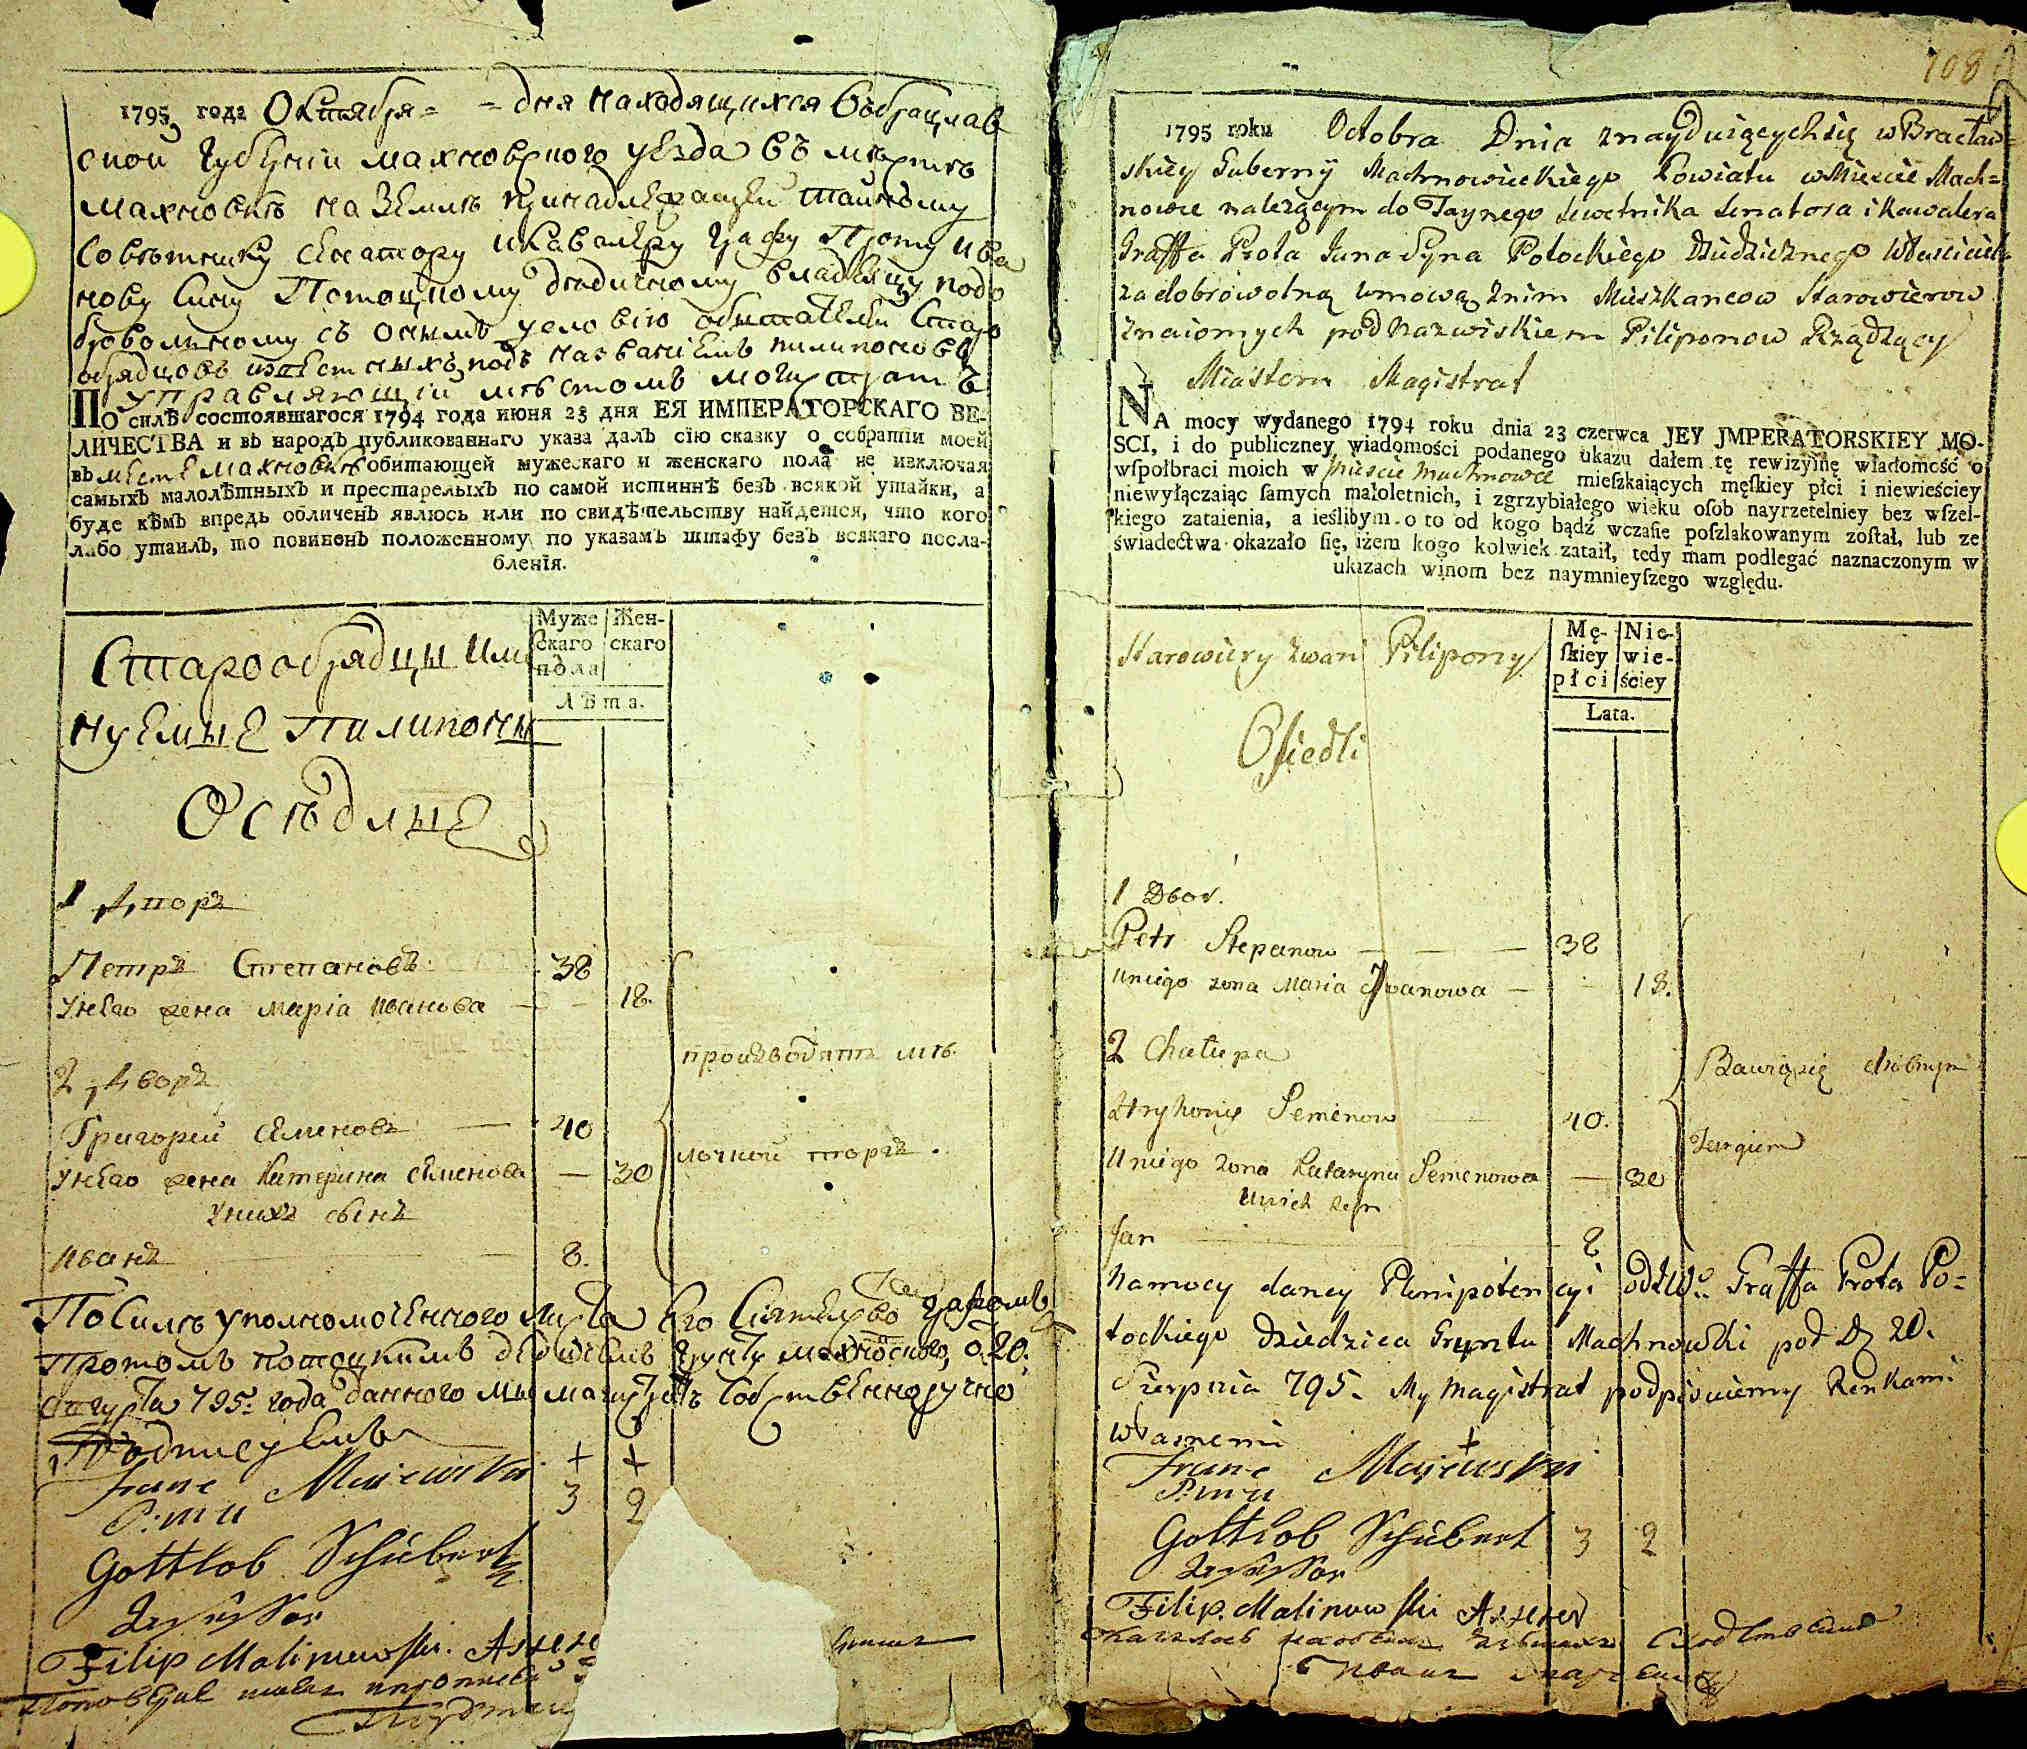 1795 года Октября = - дня находящихся въ Брацлав
ской Губерніи махновского уезда въ местѣ
махновкѣ на земле принадлежащей тайному
советнику сенатору и кавалеру графу Проту Ива
нову сину Потоцкому дедичному владельцу по до
бровольному съ онымъ условію обитателей старо
обрядцовъ известныхъ подъ названіемъ пилипоновъ
управляющій местомъ магистратъ
ПО силѣ состоявшагося 1794 года июня 23 дня ЕЯ ИМПЕРАТОРСКАГО ВЕ-
ЛИЧЕСТВА и въ народъ публикованнаго указа далъ сію сказку о собратіи моей
въ месте махновкѣ обитающей мужескаго и женскаго пола не изключая
самыхъ малолѣтныхъ и престарелыхъ по самой истиннѣ безъ всякой утайки, а
буде кѣмъ впредь обличенъ явлюсь или по свидѣтельству найдется, что кого
либо утаилъ, то повиненъ положенному по указамъ штрафу безъ всякаго посла-
бленія.
Муже
скаго
пола
Жен-
скаго
Лѣта.
Старообрядцы име
нуемые Пилипоны
Оседлые
1 Дворъ
Петръ Степановъ 38
У него жена марія иванова — 18.
2 Дворъ
Григорей Семеновъ — 40
У него жена Катерина Семенова — 30
У нихъ сынъ
Иванъ — 8.
производятъ мѣ-
лочной торгъ.
По силе уполномоченного листа Его Сіятельство Графомъ
Протомъ Потоцкимъ дедичемъ грунту махновского, 20.
августа 795. года данного мы магистратъ собственноручно
Подписуемъ
+ +
Franc Majewski 3 2
P: m u
Gottlob Schubert
Assessor
Filip Malinowski. Asse
108
1795 roku Octobra Dnia znayduiących się w Bracław=
skiey Guberny Machnowieckiego Powiatu w Miescie Mach=
nowce należącym do Taynego Sowetnika Senatora i Kawalera
Graffa Prota Jana Syna Potockiego Dziedzicznego Własciciel
za dobrowolną umową z nim Mieszkancow Starowierow
znaiomych pod Nazwiskiem Piliponow Rządzący
Miastem Magistrat
NA mocy wydanego 1794 roku dnia 23 czerwca JEY JMPERATORSKIEY MO-
SCI, i do publiczney wiadomości podanego ukazu dałem tę rewizyinę wiadomość o
wſpołbraci moich w Miescie Machnowce mieſzkaiących męſkiey płci i niewieściey
niewyłączaiąc ſamych małoletnich, i zgrzybiałego wieku oſob nayrzetelniey bez wſzel-
kiego zataienia, a ieślibym o to od kogo bądź wczaſie poſzlakowanym zoſtał, lub ze
świadectwa okazało ſię, iżem kogo kolwiek zataił, tedy mam podlegać naznaczonym w
ukazach winom bez naymnieyſzego względu.
Mę-
ſkiey
płci
Nie-
wie-
ściey
Lata.
Starowiery zwani Pilipony
Osiedli
1 Dwor.
Petr Stepanow — — — 38
u niego zona Maria Iwanowa — 18.
2 Chałupa
Hryhorey Semenow 40.
U niego zona Kataryna Semenowa — 30
U nich Syn
Jan 8
Bawią się drobnym
Targiem
Na mocy daney Plenipotencyi od JW. Graffa Prota Po=
tockiego Dziedzica Gruntu Machnowki pod D. 20.
Sierpnia 795. My Magistrat podpisuiemy Renkami
własnemi
+
Franc Majewski
P: m u
Gottlob Schubert 3 2
Assessor
Filip. Malinowski Assesor